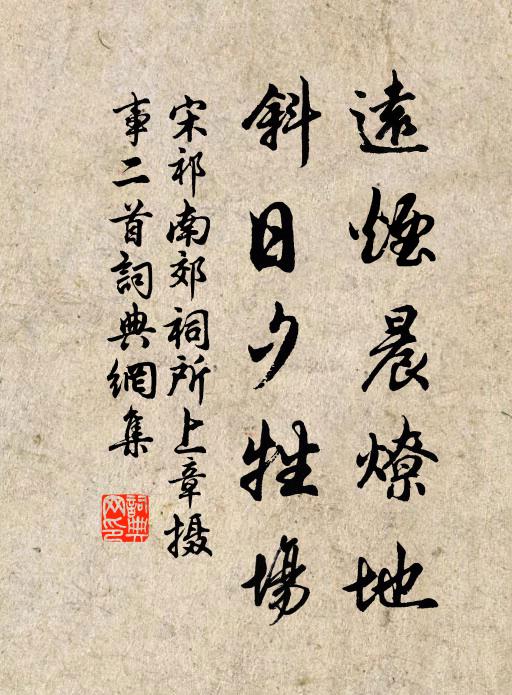 遠煙晨燎地
斜日夕牲場
宋祁南郊祠所上章摄
事二首詞典網集
詞典网印